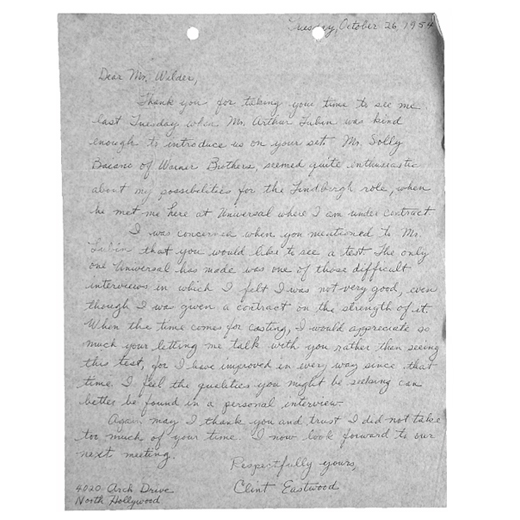 Tuesday, October 26, 1954
Dear Mr. Wilder,
Thank you for taking your time to see me
last Tuesday when Mr. Arthur Lubin was kind
enough to introduce us on your set. Mr. Solly
Baiano of Warner Brothers, seemed quite enthusiastic
about my possibilities for the Lindbergh role, when
he met me here at Universal where I am under contract
I was concerned when you mentioned to Mr.
Lubin that you would like to see a test. The only
one Universal has made was one of those difficult
interviews in which I felt I was not very good, even
though I was given a contract on the strength of it.
When the time comes for casting, I would appreciate so
much your letting me talk with you rather than seeing
this test, for I have improved in every way since that
time. I feel the qualities you might be seeking can
better be found in a personal interview.
Again may I thank you and trust I did not take
too much of your time. I now look forward to our
next meeting.
Respectfully yours,
Clint Eastwood
4020 Arch Drive
North Hollywood